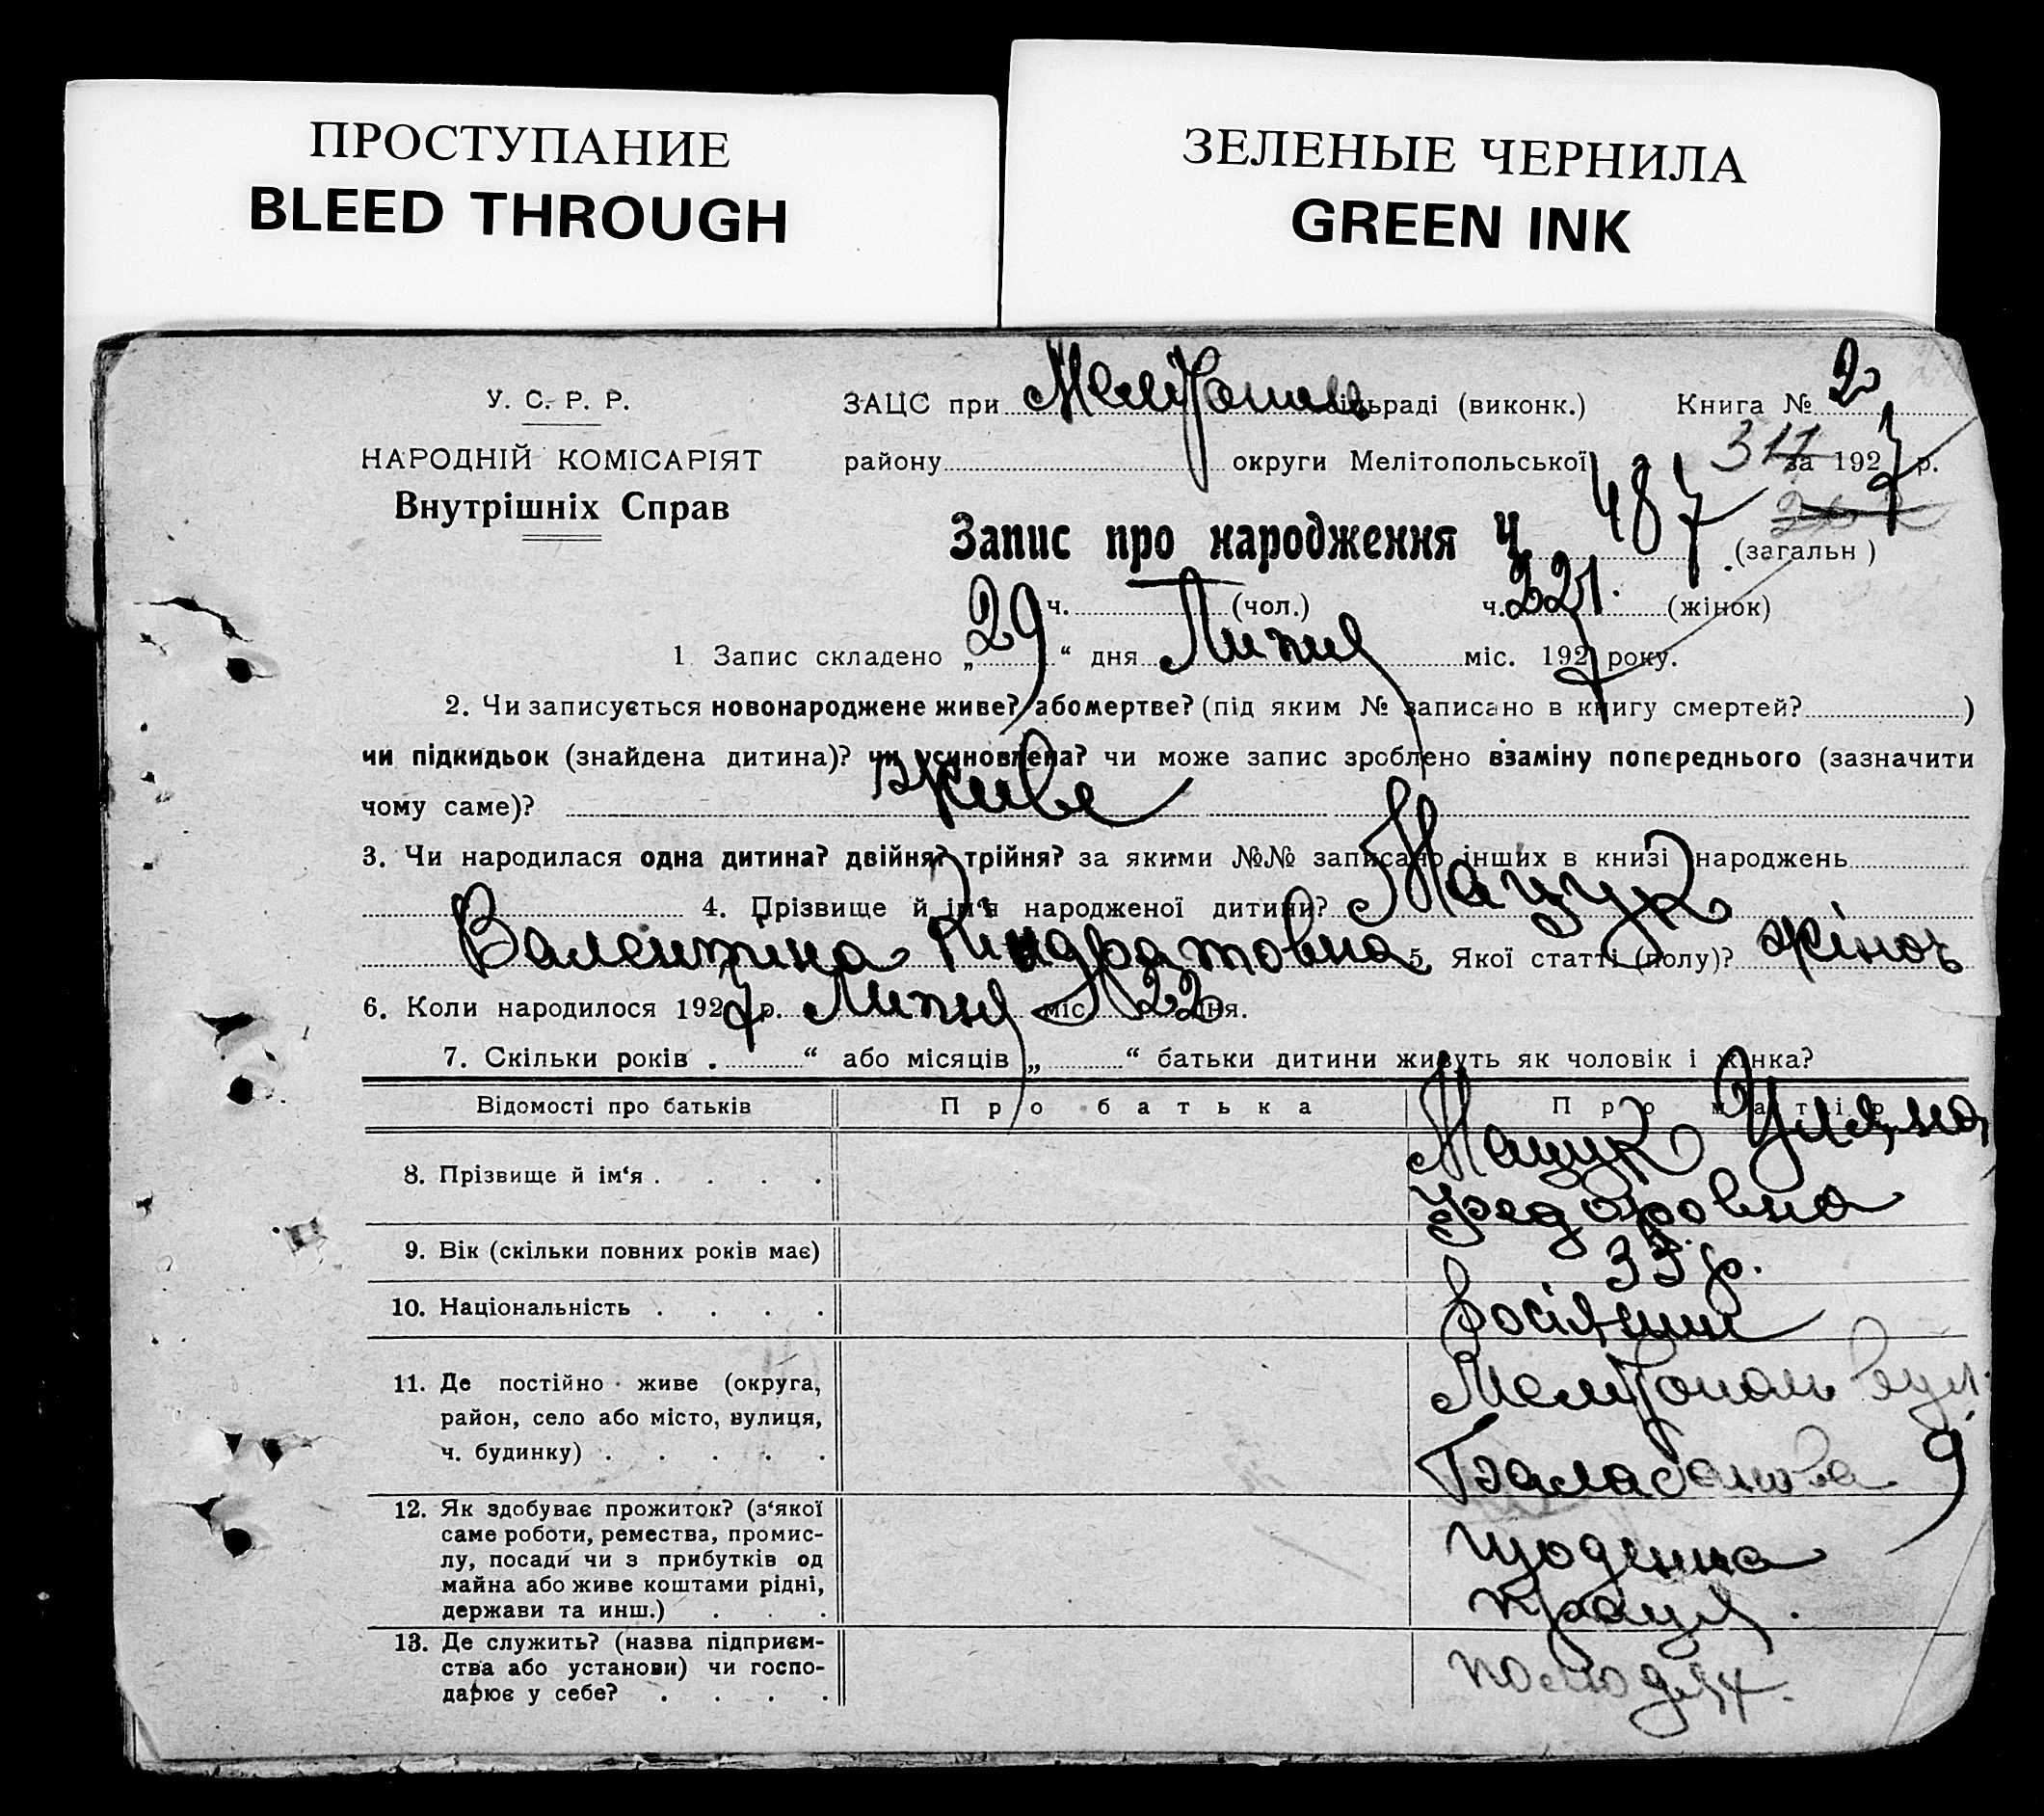 ПРОСТУПАНИЕ
BLEED THROUGH
ЗЕЛЕНЫЕ ЧЕРНИЛА
GREEN INK
У. С. Р. Р.
НАРОДНІЙ КОМІСАРІЯТ
Внутрішніх Справ
ЗАЦС при Меліто ільраді (виконк.) Книга № 2
району округи Мелітопольської за 1927 р.
Запис про народження Ч 487 (загальн)
ч. (чол.) ч. 321. (жінок)
1 Запис складено „29“ дня Липня міс. 1927 року.
2. Чи записується новонароджене живе? або мертве? (під яким № записано в книгу смертей? )
чи підкидьок (знайдена дитина)? чи усиновлена? чи може запис зроблено взаміну попереднього (зазначити
чому саме)? живе
3. Чи народилася одна дитина? двійня? трійня? за якими №№ записано інших в книзі народжень
4. Прізвище й ім'я народженої дитини? Мацук
Валентіна Кіндратовна 5. Якої статті (полу)? жіноч
6. Коли народилося 1927 р. Липня міс. 22 дня.
7. Скільки років „ “ або місяців „ “ батьки дитини живуть як чоловік і жінка?
Відомості про батьків Про батька Про матір
8. Прізвище й ім'я . . . . Мацук Уляна
Федоровна
9. Вік (скільки повних років має) 33 р.
10. Національність . . . . Росіянин
11. Де постійно живе (округа, Мелітополь вул.
район, село або місто, вулиця,
ч. будинку) . . . . . Балабанова 9
12. Як здобуває прожиток? (з'якої
саме роботи, ремества, промис-
лу, посади чи з прибутків од щоденна
майна або живе коштами рідні,
держави та инш.) . . . праця.
13. Де служить? (назва підприєм-
ства або установи) чи госпо-
дарює у себе? . . . .